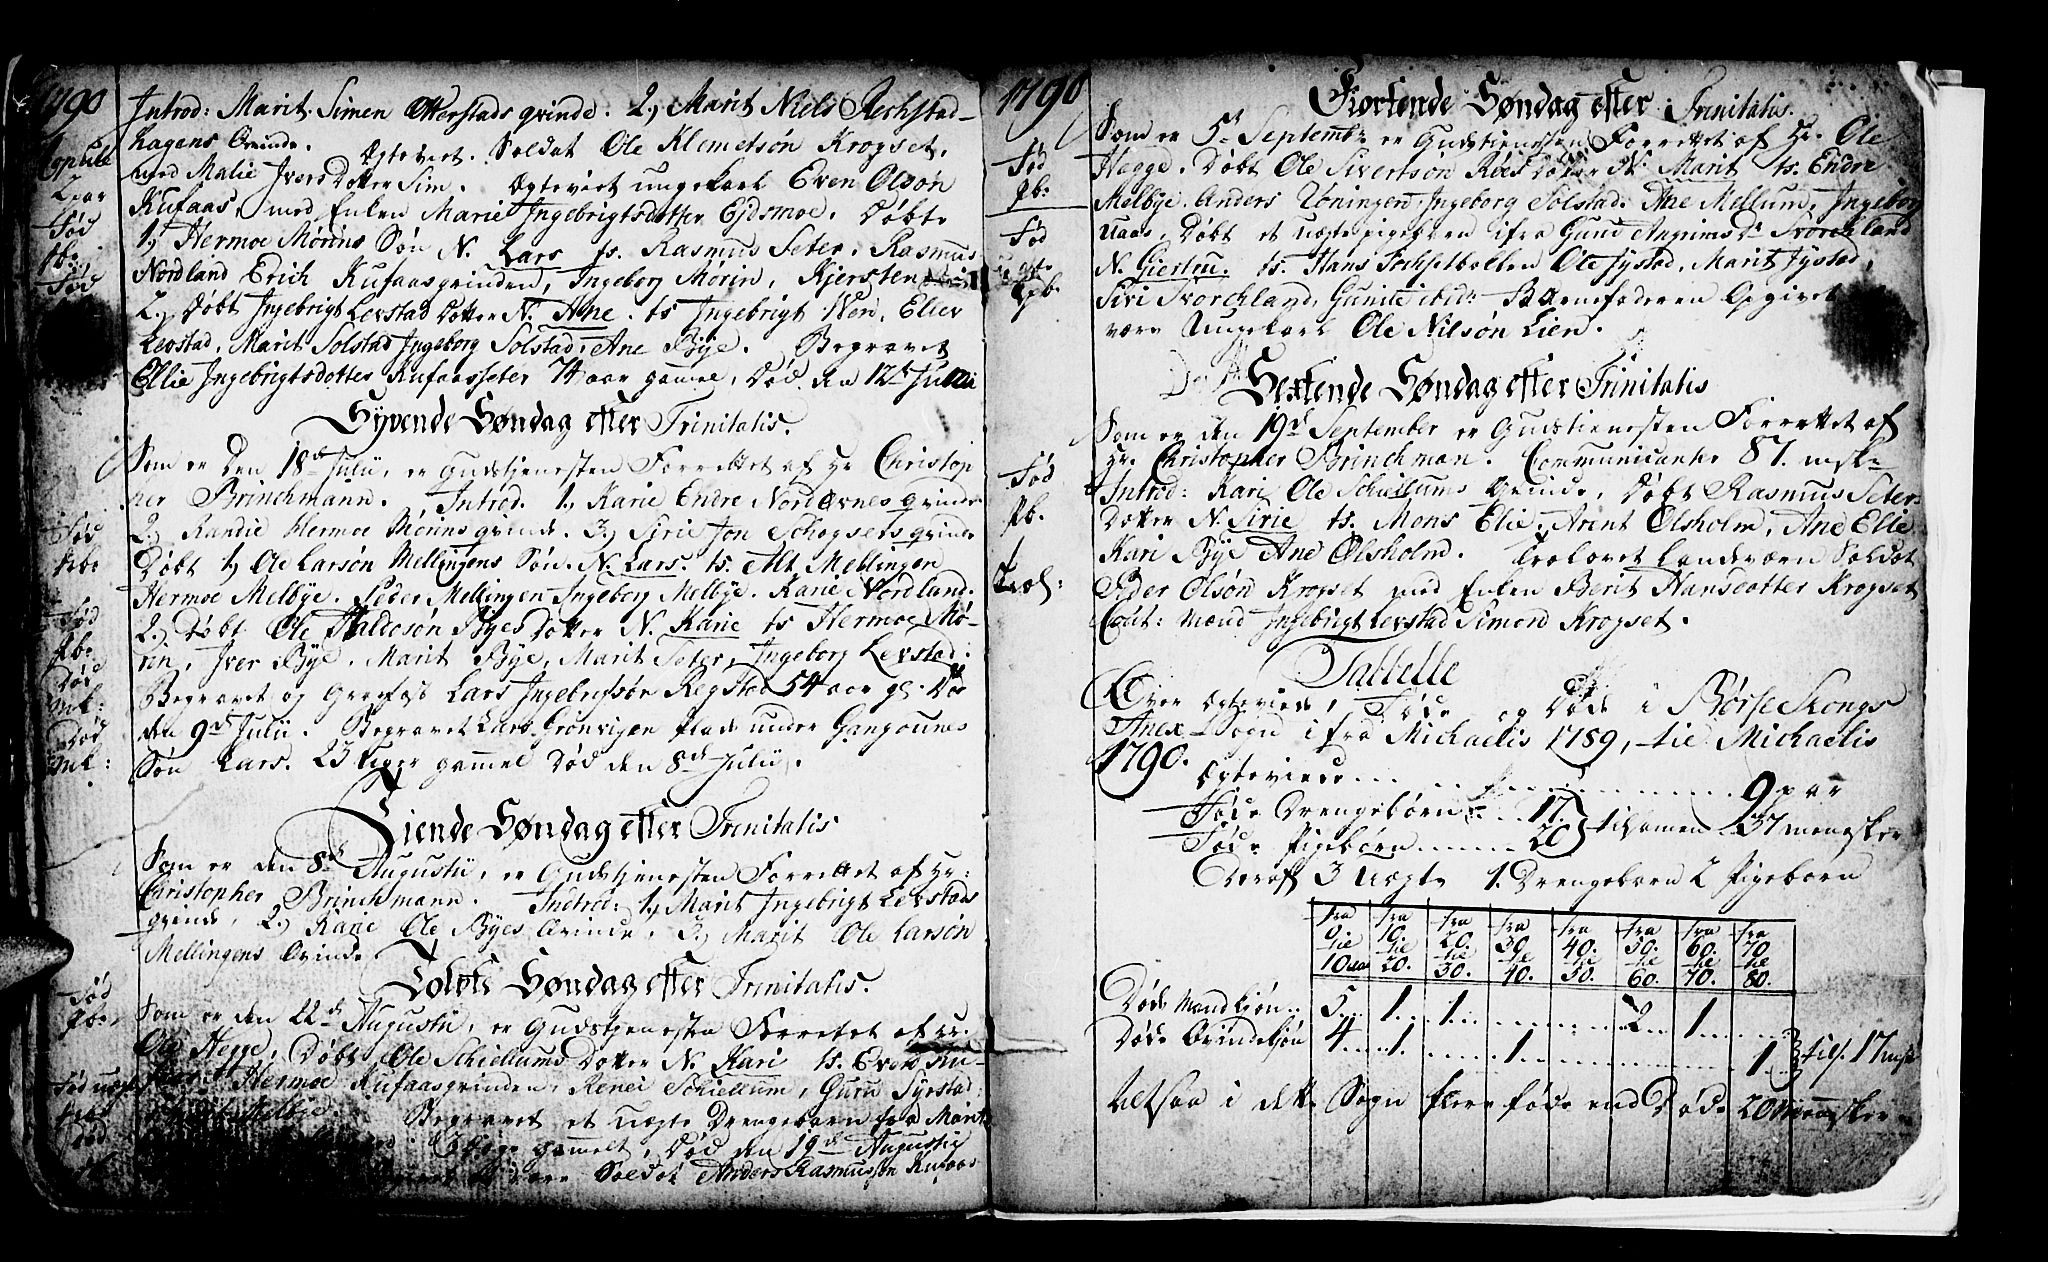 1790
Introd: Marit Simen Okerstads qvinde. 2, Marit Niels Rechstad-
hagens Qvinde. Ægteviet. Soldat Ole Klemetsøn Krogset,
Copulte
med Malie IversDotter Sim. Ægteviet ungekarl Even Olsøn
2 par
Kufaas, med Enken Marie Ingebrigtsdotter Ejdsmoe. Døbte
Fød
1, Hermoe Mørins Søn N. Lars ts. Rasmus Seter, Rasmus
Nordland Erich Kufaasqvinden, Ingeborg Mørin, Kjersten
Fød
2, Døbt Ingebrigt Levstad Dotter N. Ane. ts Ingebrigt Werø, Ellev
Levstad, Marit Solstad Ingeborg Solstad, Ane Bye. Begravet
Ellie Ingebrigtsdotter Kufaasseter 74 aar gamel, Død den 12te Julii
Syvende Søndag efter Trinitatis.
Som er Den 18de Julii, er Gudstjenesten Forrettet af Hr Christop
her Brinchmann. Introd. 1, Karie Endre NordØvnes qvinde
2, Randie Hermoe Mørins qvinde. 3, Sirie Jon Schogsets qvinde
Fød
Døbt 1, Ole Larsøn Mellingens Søn. N. Lars. ts. Alt Mellingen
Hermoe Melbye. Peder Mellingen Ingeborg Melbye. Karie Nordland.
Fød
2, Døbt Ole Haldosøn Byes Dotter N. Karie ts Hermoe Mø-
pb.
rin, Iver Bye, Marit Bye, Marit Seter, Ingeborg Levstad.
Død
Begravet og Grav fæst Lars Ingebrigtsøn Regstad 54 aar gl. Død
mk:
den 9de Julii. Begravet Lars Grønvigen Plads under Gangounes
Død
Søn Lars. 23 Uger gammel Død den 8de Julii.
mk:
Tiende Søndag efter Trinitatis
Som er den 8de Augustii, er Gudstjenesten Forrettet af Hr:
Christopher Brinchmann. Introd: 1, Marit Ingebrigt Levstads
qvinde, 2, Karie Ole Byes Qvinde, 3, Marit Ole Larsøn
Mellingens Qvinde
Tolvte Søndag efter Trinitatis.
Fød
Som er den 22de Augustii, er Gudstjenesten Forrettet af Hr.
pb.
Ole Hegge, Døbt Ole Schiellums Dotter N. Kari ts. Even Ku-
Hermoe Kufaasqvinden, Renei Schiellum, Guru Tyestad
Fød uægte
Melbye. Begravet et uægte Drengebarn fra Marit
død
gammelt, Død den 19de Augustii
Soldat Anders Rasmussøn Kufaas
1790
Fiortende Søndag efter Trinitatis.
Som er 5te September er Gudstienesten Forrettet af Hr. Ole
Fød
Hegge. Døbt Ole Sivertsøn Røes Dotter N. Marit ts. Endre
pb.
Melbye. Anders Uøningen, Ingeborg Solstad. Ane Mellum, Ingeborg
Fød
uaas, Døbt et uægte pigebarn ifra Gunil Angrims Dr Tvorchland
uægte
N. Giertru. ts. Hans Fochsetballen Ole Tystad, Marit Tystad,
pb.
Siri Tvorchland, Gunild ibid: Barnefaderen Opgivet
være Ungekarl Ole Nilsøn Lien.
Sextende Søndag efter Trinitatis
Som er den 19de September er Gudstienesten Forrettet af
Hr. Christopher Brinchman. Communicanter 87. mske
Fød
Introd: Kari Ole Schiellums Qvinde, Døbt Rasmus Seter
pb.
Dotter N. Sirie ts. Mons Elie, Arent Olsholm, Ane Elie
Kari Bye Ane Olsholm. Trolovet Landværn Soldat
Trol:
Peder Olsøn Krogset med Enken Berit Hansdotter Krogset
Caut: Mænd Ingebrigt Levstad Simon Krogset.
Tabelle
Over Ægteviede, Føde og Døde i Børse Skougs
Anex Sogn ifra Michaelis 1789, til Michaelis
1790.
Ægteviede ... 9 par
Føde Drengebørn .. 17.
Føde Pigebørn ...... 20
} tilsamen 37 mennesker
Deraf 3 uægte 1. Drengebarn 2 Pigebørn
fra 0. tie 10 aar fra 10. tie 20. fra 20. tie 30. fra 30. tie 40. fra 40. tie 50. fra 50. tie 60. fra 60. tie 70. fra 70 tie 80.
Døde Mandkiøn .. 5 ... 1 .... 1 ... 2 ... 1 ...
Døde Qvindekiøn 4 .... 1 ... 1 ... 1 } tils. 17 msk
Altsaa i dette Sogn flere føde end Døde 20 Mennesker